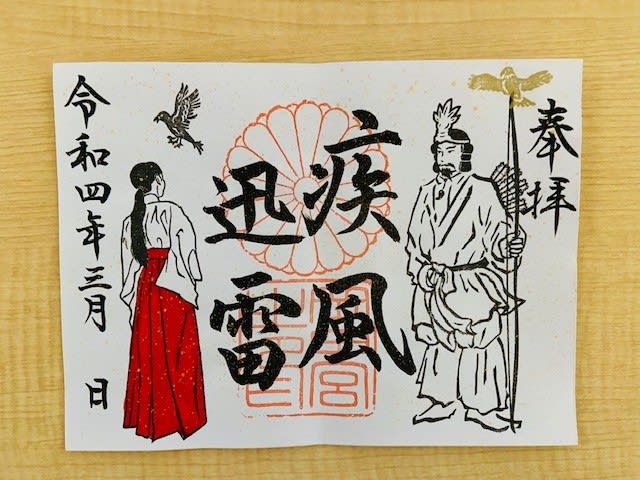 奉拝
疾風
迅雷
令和四年三月 日